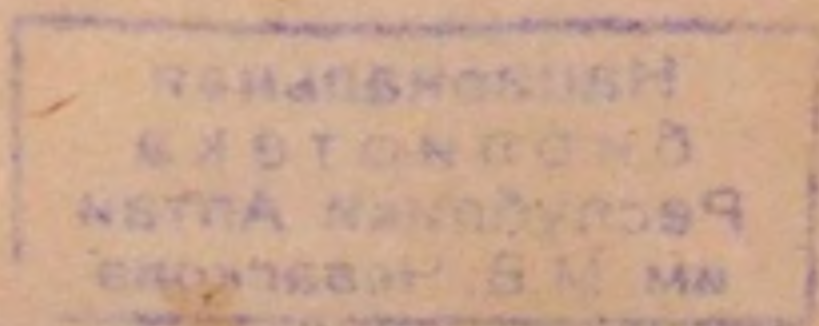 Национальная
библиотека
Республики Алтай
им М В Чевалкова